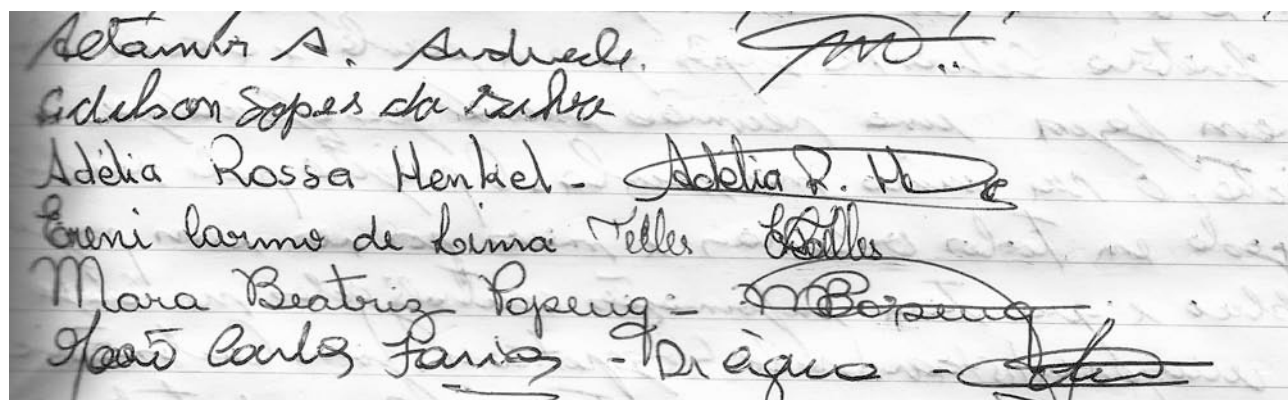 Altamir A. Andrade.
Edilson Lopes da Silva
Adélia Rossa Henkel - Adélia R. H
Ereni Carmo de Lima Telles ETelles
Mara Beatriz Popeng - MBopeng
João Carlos Farias - Dr água -